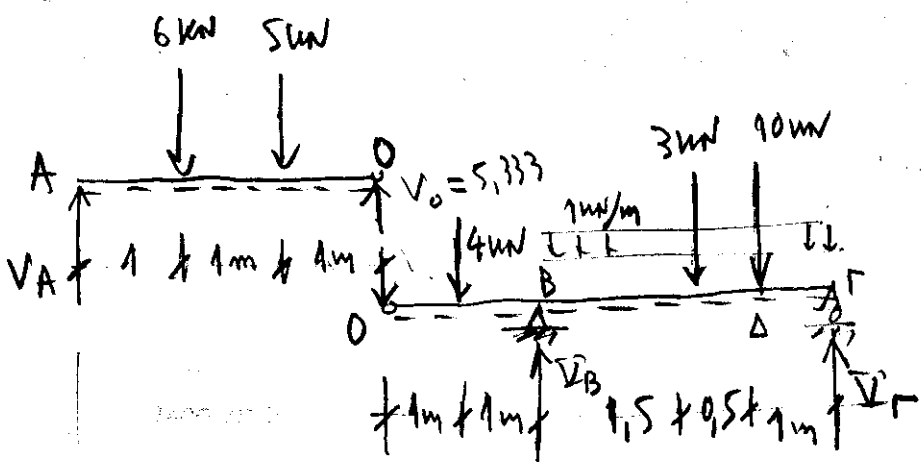 6 KN 5 KN
A O V₀ = 5,333
3 KN 10 KN
1 KN/m
4 KN
B Γ
V_A 1 1m 1m
O Δ
V_B V_Γ
1m 1m 1,5 0,5 1m